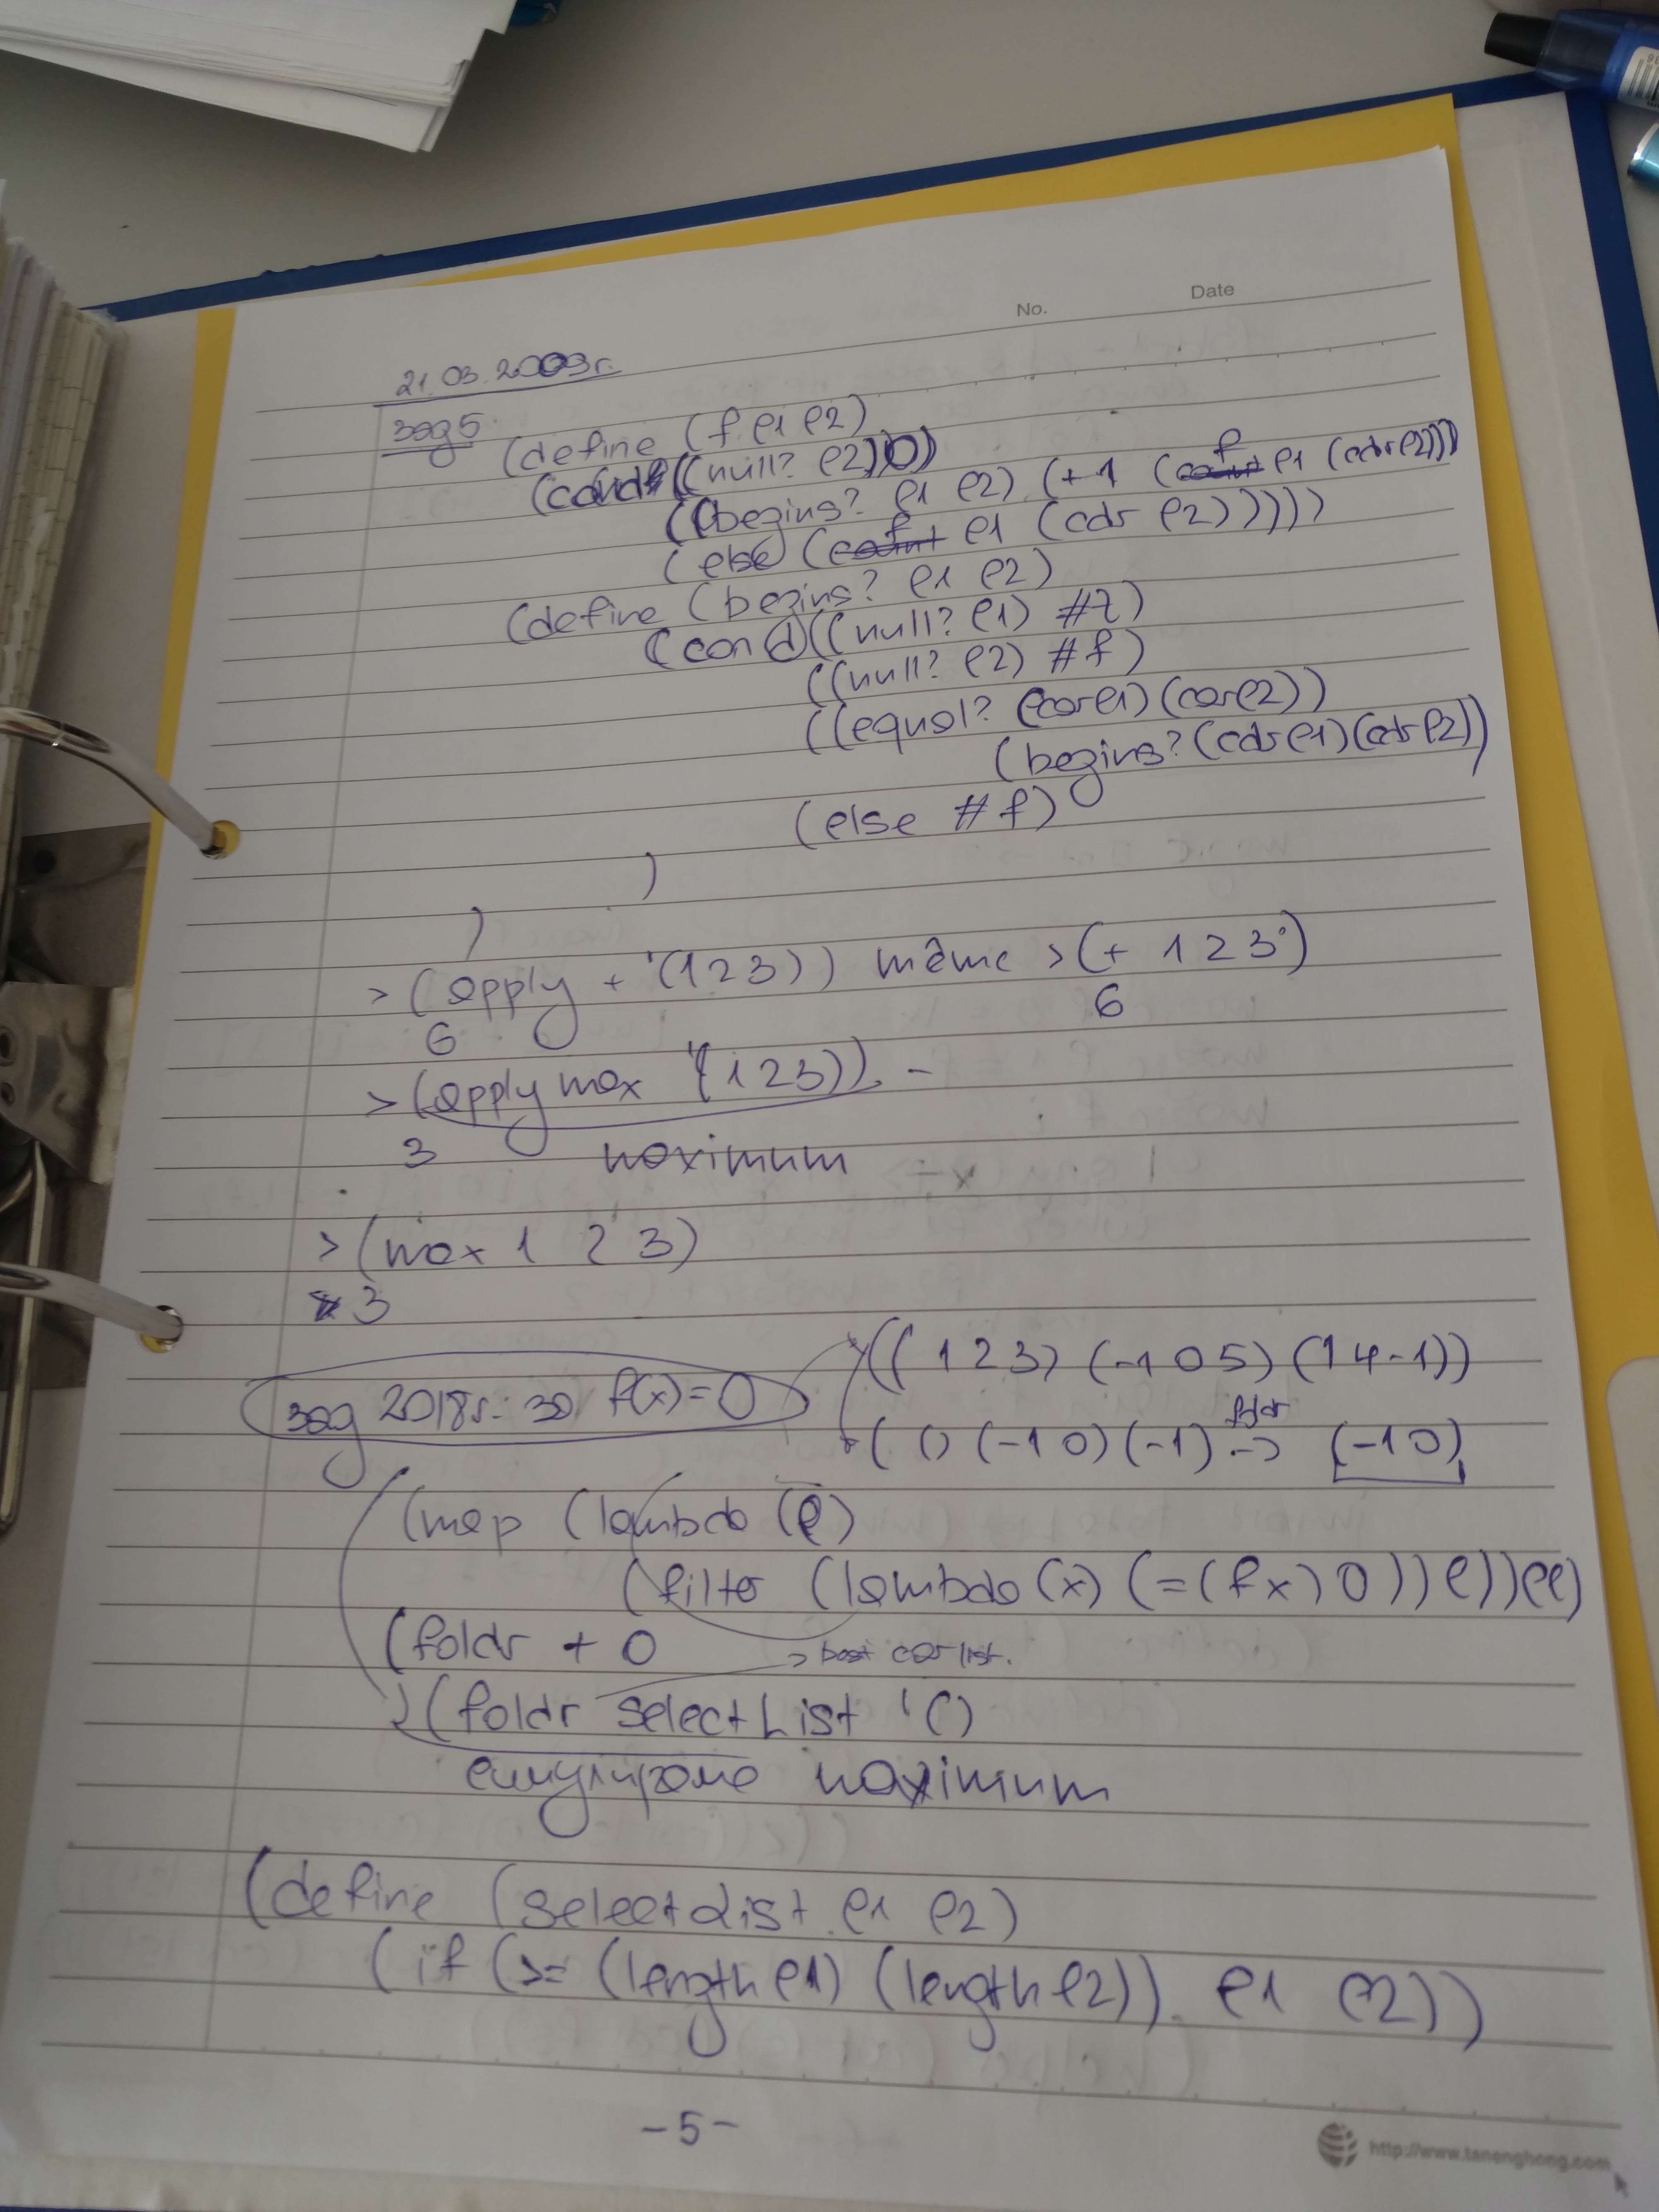 No. Date
21.03.2009г.
зад5.
(define (f l1 l2)
(cond ((null? l2) 0)
((begins? l1 l2) (+ 1 (f l1 (cdr l2)))
(else (f l1 (cdr l2)))))
(define (begins? l1 l2)
(cond ((null? l1) #t)
((null? l2) #f)
((equal? (car l1) (car l2))
(begins? (cdr l1) (cdr l2))
(else #f)
)
)
> (apply + '(1 2 3)) même > (+ 1 2 3)
6 6
> (apply max '(1 2 3)) -
3 maximum
> (max 1 2 3)
3
зад 2018г. 3a) f(x)=0 ((1 2 3) (-1 0 5) (1 4 -1))
foldr
( () (-1 0) (-1) -> (-1 0)
(map (lambda (l)
(filter (lambda (x) (= (f x) 0)) l)) ll)
(foldr + 0 -> best car list.
(foldr selectList '()
емулираме maximum
(define (selectList l1 l2)
(if (>= (length l1) (length l2)) l1 l2))
-5-
http://www.tanenghong.com